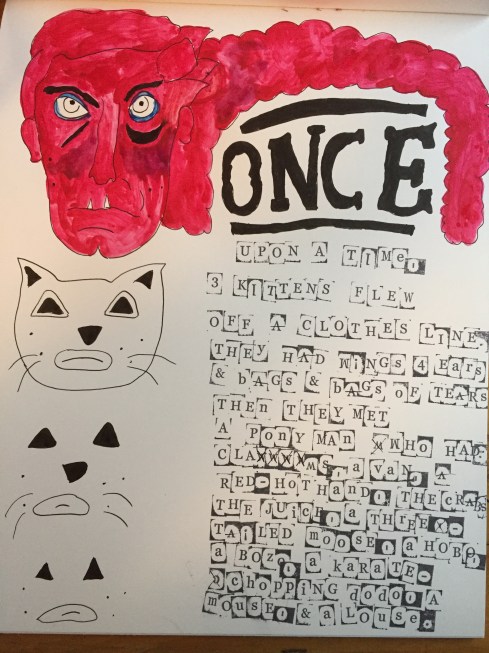 ONCE
UPON A TIME,
3 KITTENS FLEW
OFF A CLOTHES LINE,
THEY HAD WINGS 4 EARS
& bAGS & bAGS OF TEARS
THEN THEY MET
A PONY MAN WHO HAD:
CLAXXXXMS, a VAN, A
RED-HOT HAND, THE CRABS
THE JUICE, a THREE X-
TAILED MOOSE, a HOBO,
a BOZ, a KARATE-
chopping dodo, A
MOUSE, & a LOUSE.